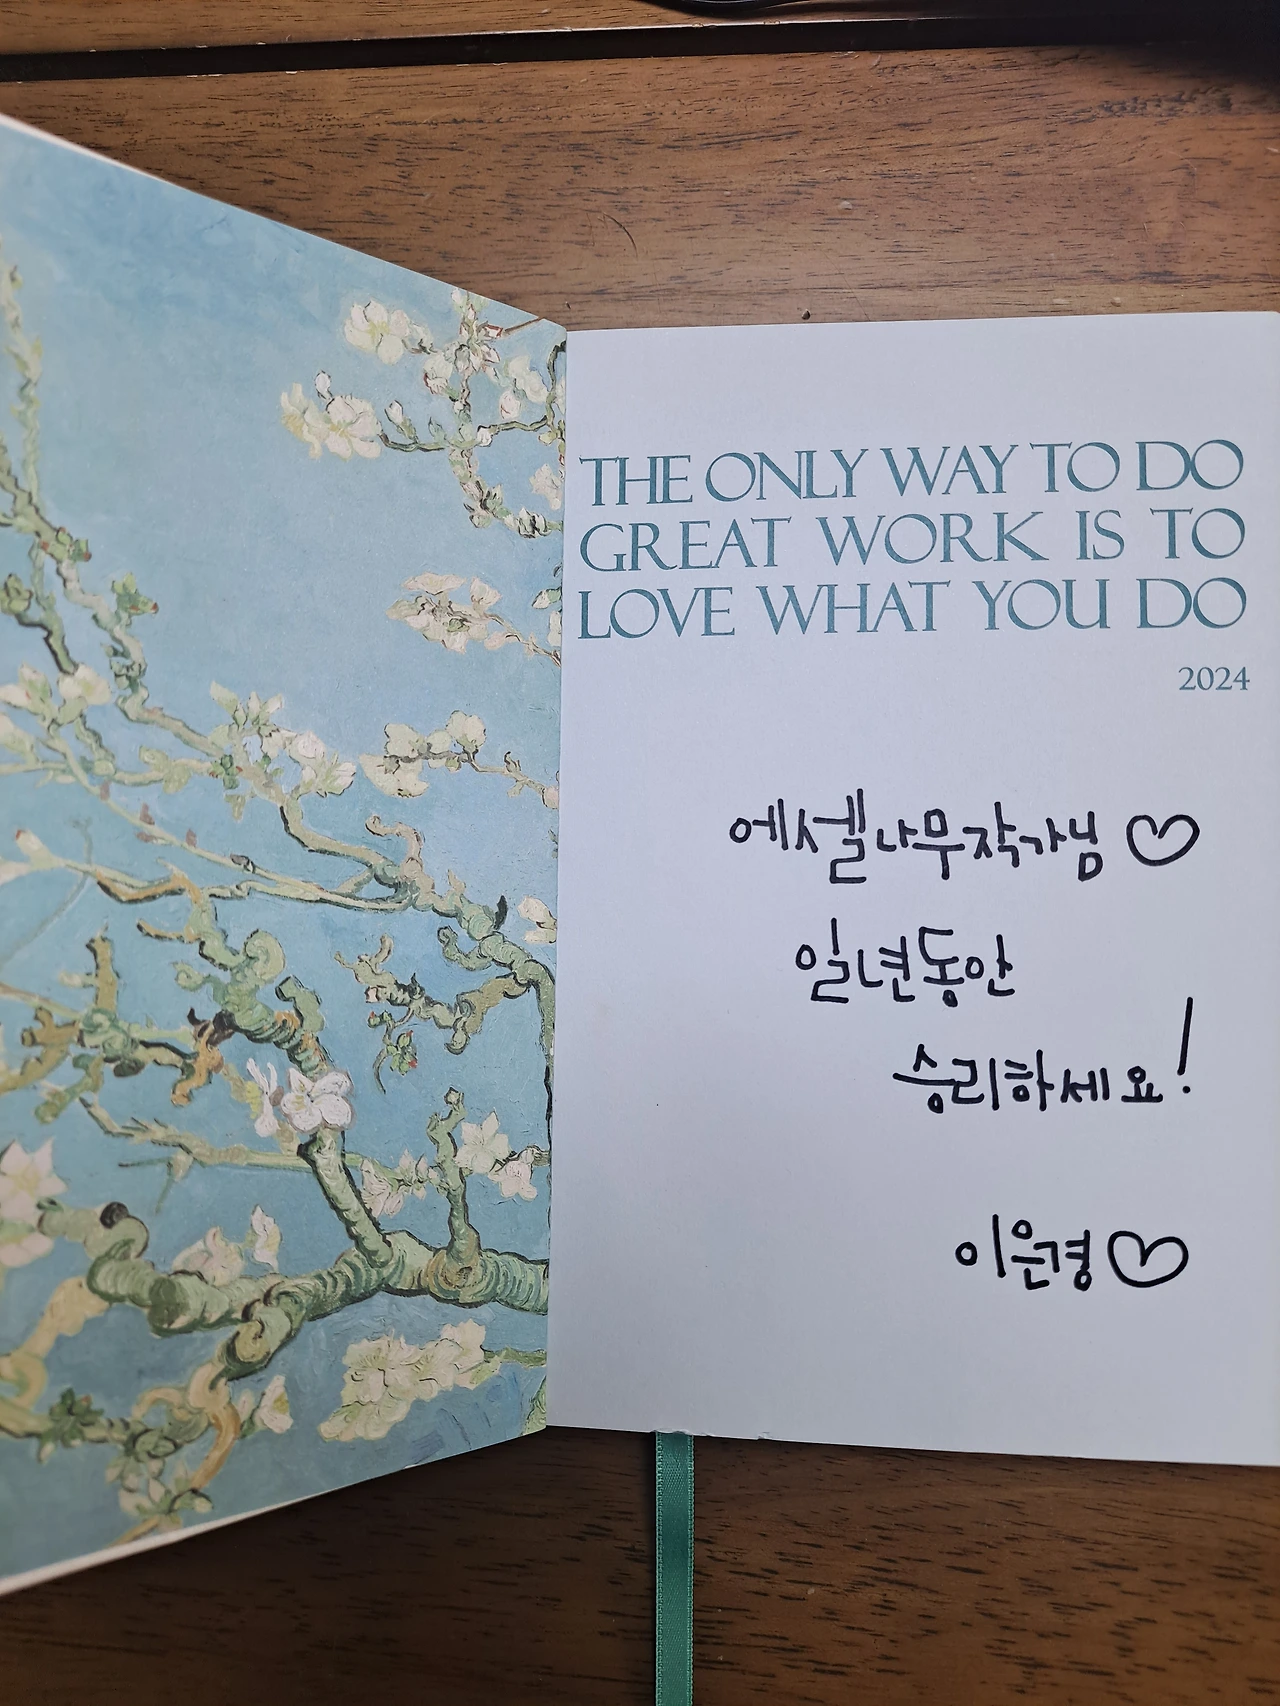 THE ONLY WAY TO DO
GREAT WORK IS TO
LOVE WHAT YOU DO
2024
에셀나무작가님♡
일년동안
승리하세요!
이은경♡